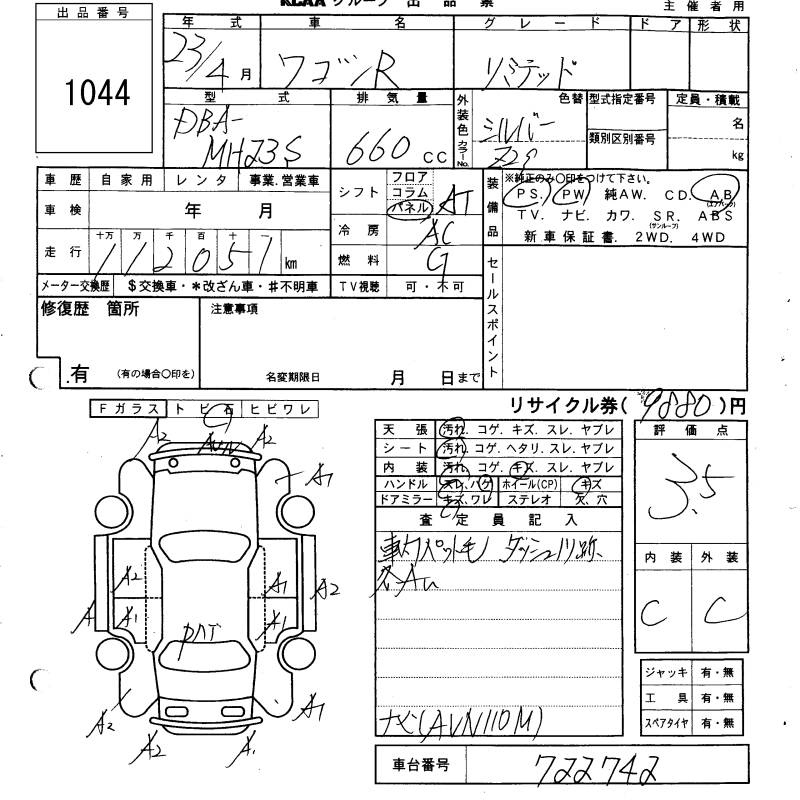 KCAA グループ 出 品 票
主 催 者 用
出 品 番 号
1044
年 式 車 名 グ レ ー ド ド ア 形 状
23/4 月 ワゴンR リミテッド
型 式 排 気 量 外装色 カラーNo. 色替 型式指定番号 定員・積載
DBA-
MH23S 660 cc シルバー 類別区別番号 名
Z2S kg
車 歴 自 家 用 レ ン タ 事業.営業車
シフト フロア コラム パネル AT
装備品 ※純正のみ○印をつけて下さい。
PS. PW. 純AW. CD. A.B (エアバック)
TV. ナビ. カワ. SR. (サンルーフ) ABS
新 車 保 証 書. 2WD. 4WD
車 検 年 月
冷 房 AC
走 行 十万 万 千 百 十
112057 km
燃 料 G
メーター交換歴 $交換車・*改ざん車・#不明車
TV視聴 可・不可
セールスポイント
修復歴 箇所
注意事項
.有 (有の場合○印を)
名変期限日 月 日まで
リサイクル券( 9880 )円
Fガラス トビ石 ヒビワレ
天 張 汚れ. コゲ. キズ. スレ. ヤブレ
シート 汚れ. コゲ. ヘタリ. スレ. ヤブレ
内 装 汚れ. コゲ. キズ. スレ. ヤブレ
ハンドル スレ. ハゲ ホイール(CP) キズ
ドアミラー キズ. ワレ ステレオ 欠. 穴
評 価 点
3.5
内 装 外 装
C C
査 定 員 記 入
ナビ(AVN110M)
A2 A2
A1
A2 A1 A2
A A1 A1
A2 A1
A2 A1
ジャッキ 有・無
工 具 有・無
スペアタイヤ 有・無
車台番号 722742